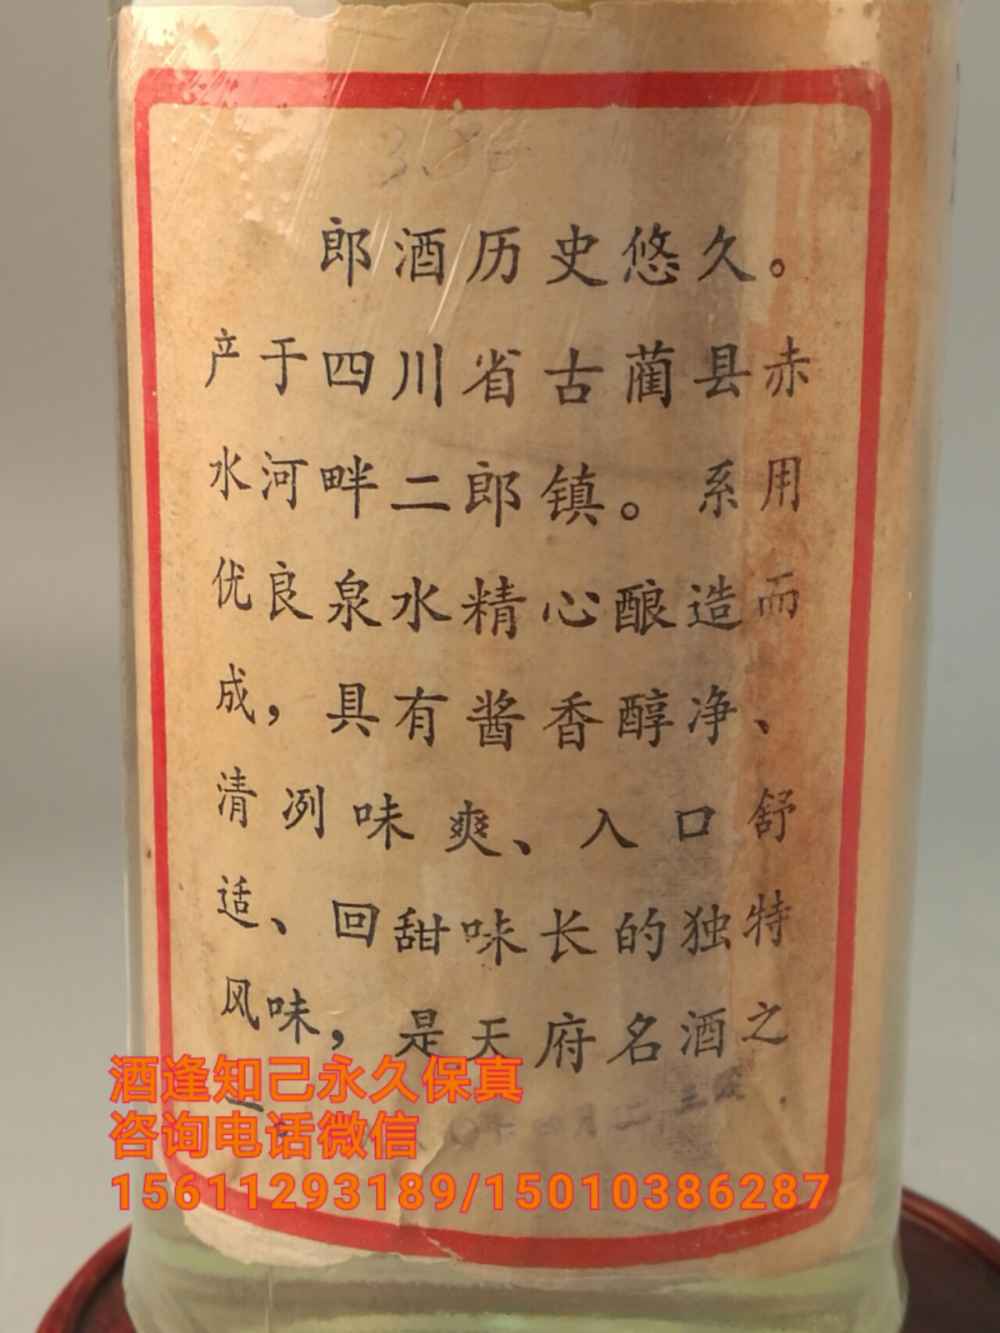 郎酒历史悠久。
产于四川省古蔺县赤
水河畔二郎镇。系用
优良泉水精心酿造而
成，具有酱香醇净、
清冽味爽、入口舒
适、回甜味长的独特
风味，是天府名酒之
一
酒逢知己永久保真
咨询电话微信
15611293189/15010386287